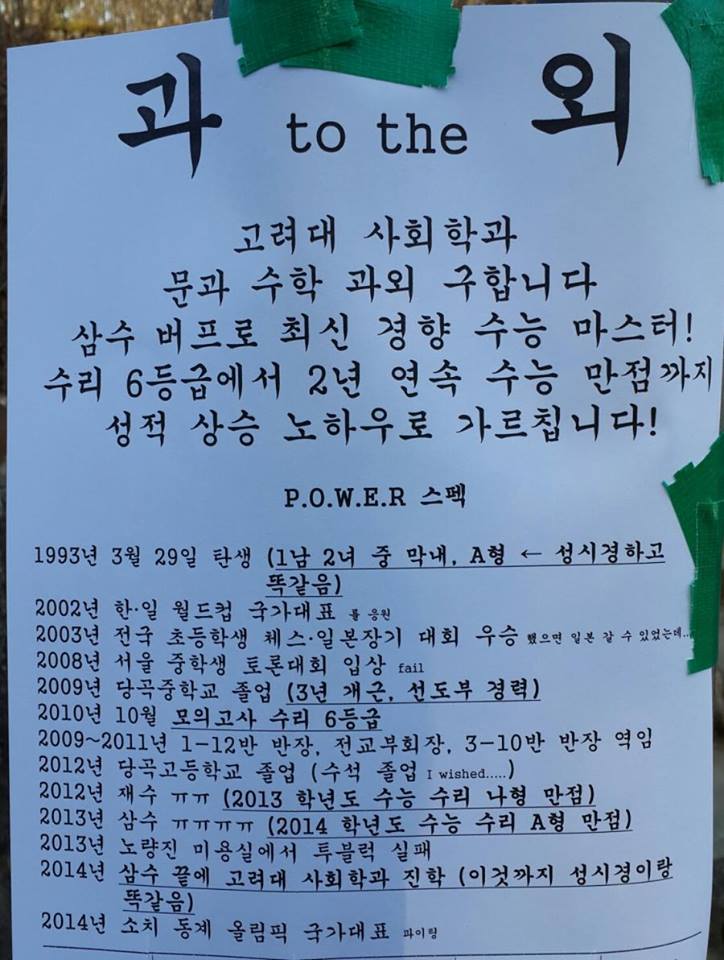 과 to the 외
고려대 사회학과
문과 수학 과외 구합니다
삼수 버프로 최신 경향 수능 마스터!
수리 6등급에서 2년 연속 수능 만점까지
성적 상승 노하우로 가르칩니다!
P.O.W.E.R 스펙
1993년 3월 29일 탄생 (1남 2녀 중 막내, A형 ← 성시경하고
똑같음)
2002년 한·일 월드컵 국가대표 를 응원
2003년 전국 초등학생 체스·일본장기 대회 우승 했으면 일본 갈 수 있었는데..
2008년 서울 중학생 토론대회 입상 fail
2009년 당곡중학교 졸업 (3년 개근, 선도부 경력)
2010년 10월 모의고사 수리 6등급
2009~2011년 1-12반 반장, 전교부회장, 3-10반 반장 역임
2012년 당곡고등학교 졸업 (수석 졸업 I wished.....)
2012년 재수 ㅠㅠ (2013 학년도 수능 수리 나형 만점)
2013년 삼수 ㅠㅠㅠㅠ (2014 학년도 수능 수리 A형 만점)
2013년 노량진 미용실에서 투블럭 실패
2014년 삼수 끝에 고려대 사회학과 진학 (이것까지 성시경이랑
똑같음)
2014년 소치 동계 올림픽 국가대표 파이팅